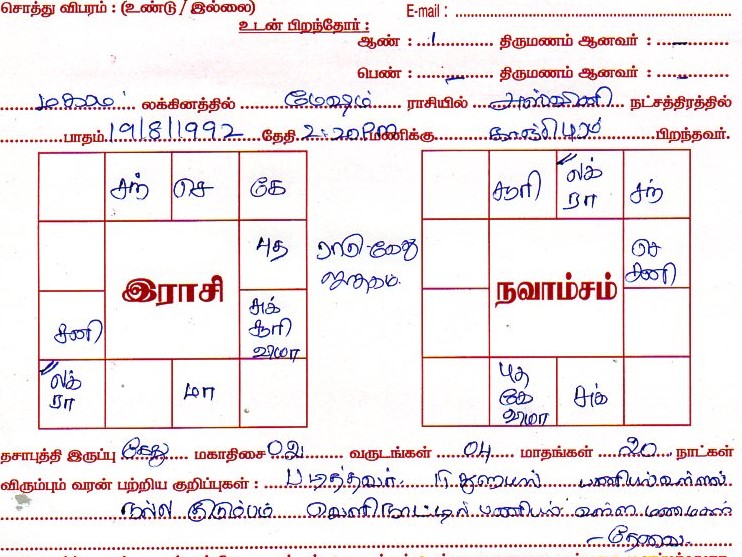 சொத்து விபரம் : (உண்டு / இல்லை) E-mail :
உடன் பிறந்தோர் :
ஆண் : 1 திருமணம் ஆனவர் : –
பெண் : – திருமணம் ஆனவர் : –
லக்கினத்தில் மேஷம் ராசியில் அஸ்வினி நட்சத்திரத்தில்
பாதம் 19/8/1992 தேதி 2:20PM மணிக்கு காஞ்சிபுரம் பிறந்தவர்.
சந் செ கே சூரி லக் ரா சந்
புத ராகு-கேது செ சனி
இராசி நவாம்சம்
சனி சுக் சூரி வியா
லக் ரா மா புத கே வியா சுக்
தசாபுத்தி இருப்பு கேது மகாதிசை 02 வருடங்கள் 04 மாதங்கள் 20 நாட்கள்
விரும்பும் வரன் பற்றிய குறிப்புகள் : படித்தவர். பணியில் உள்ளவர்
நல்ல குடும்பம் வெளிநாட்டில் பணியில் உள்ள மணமகன்
– தேவை.